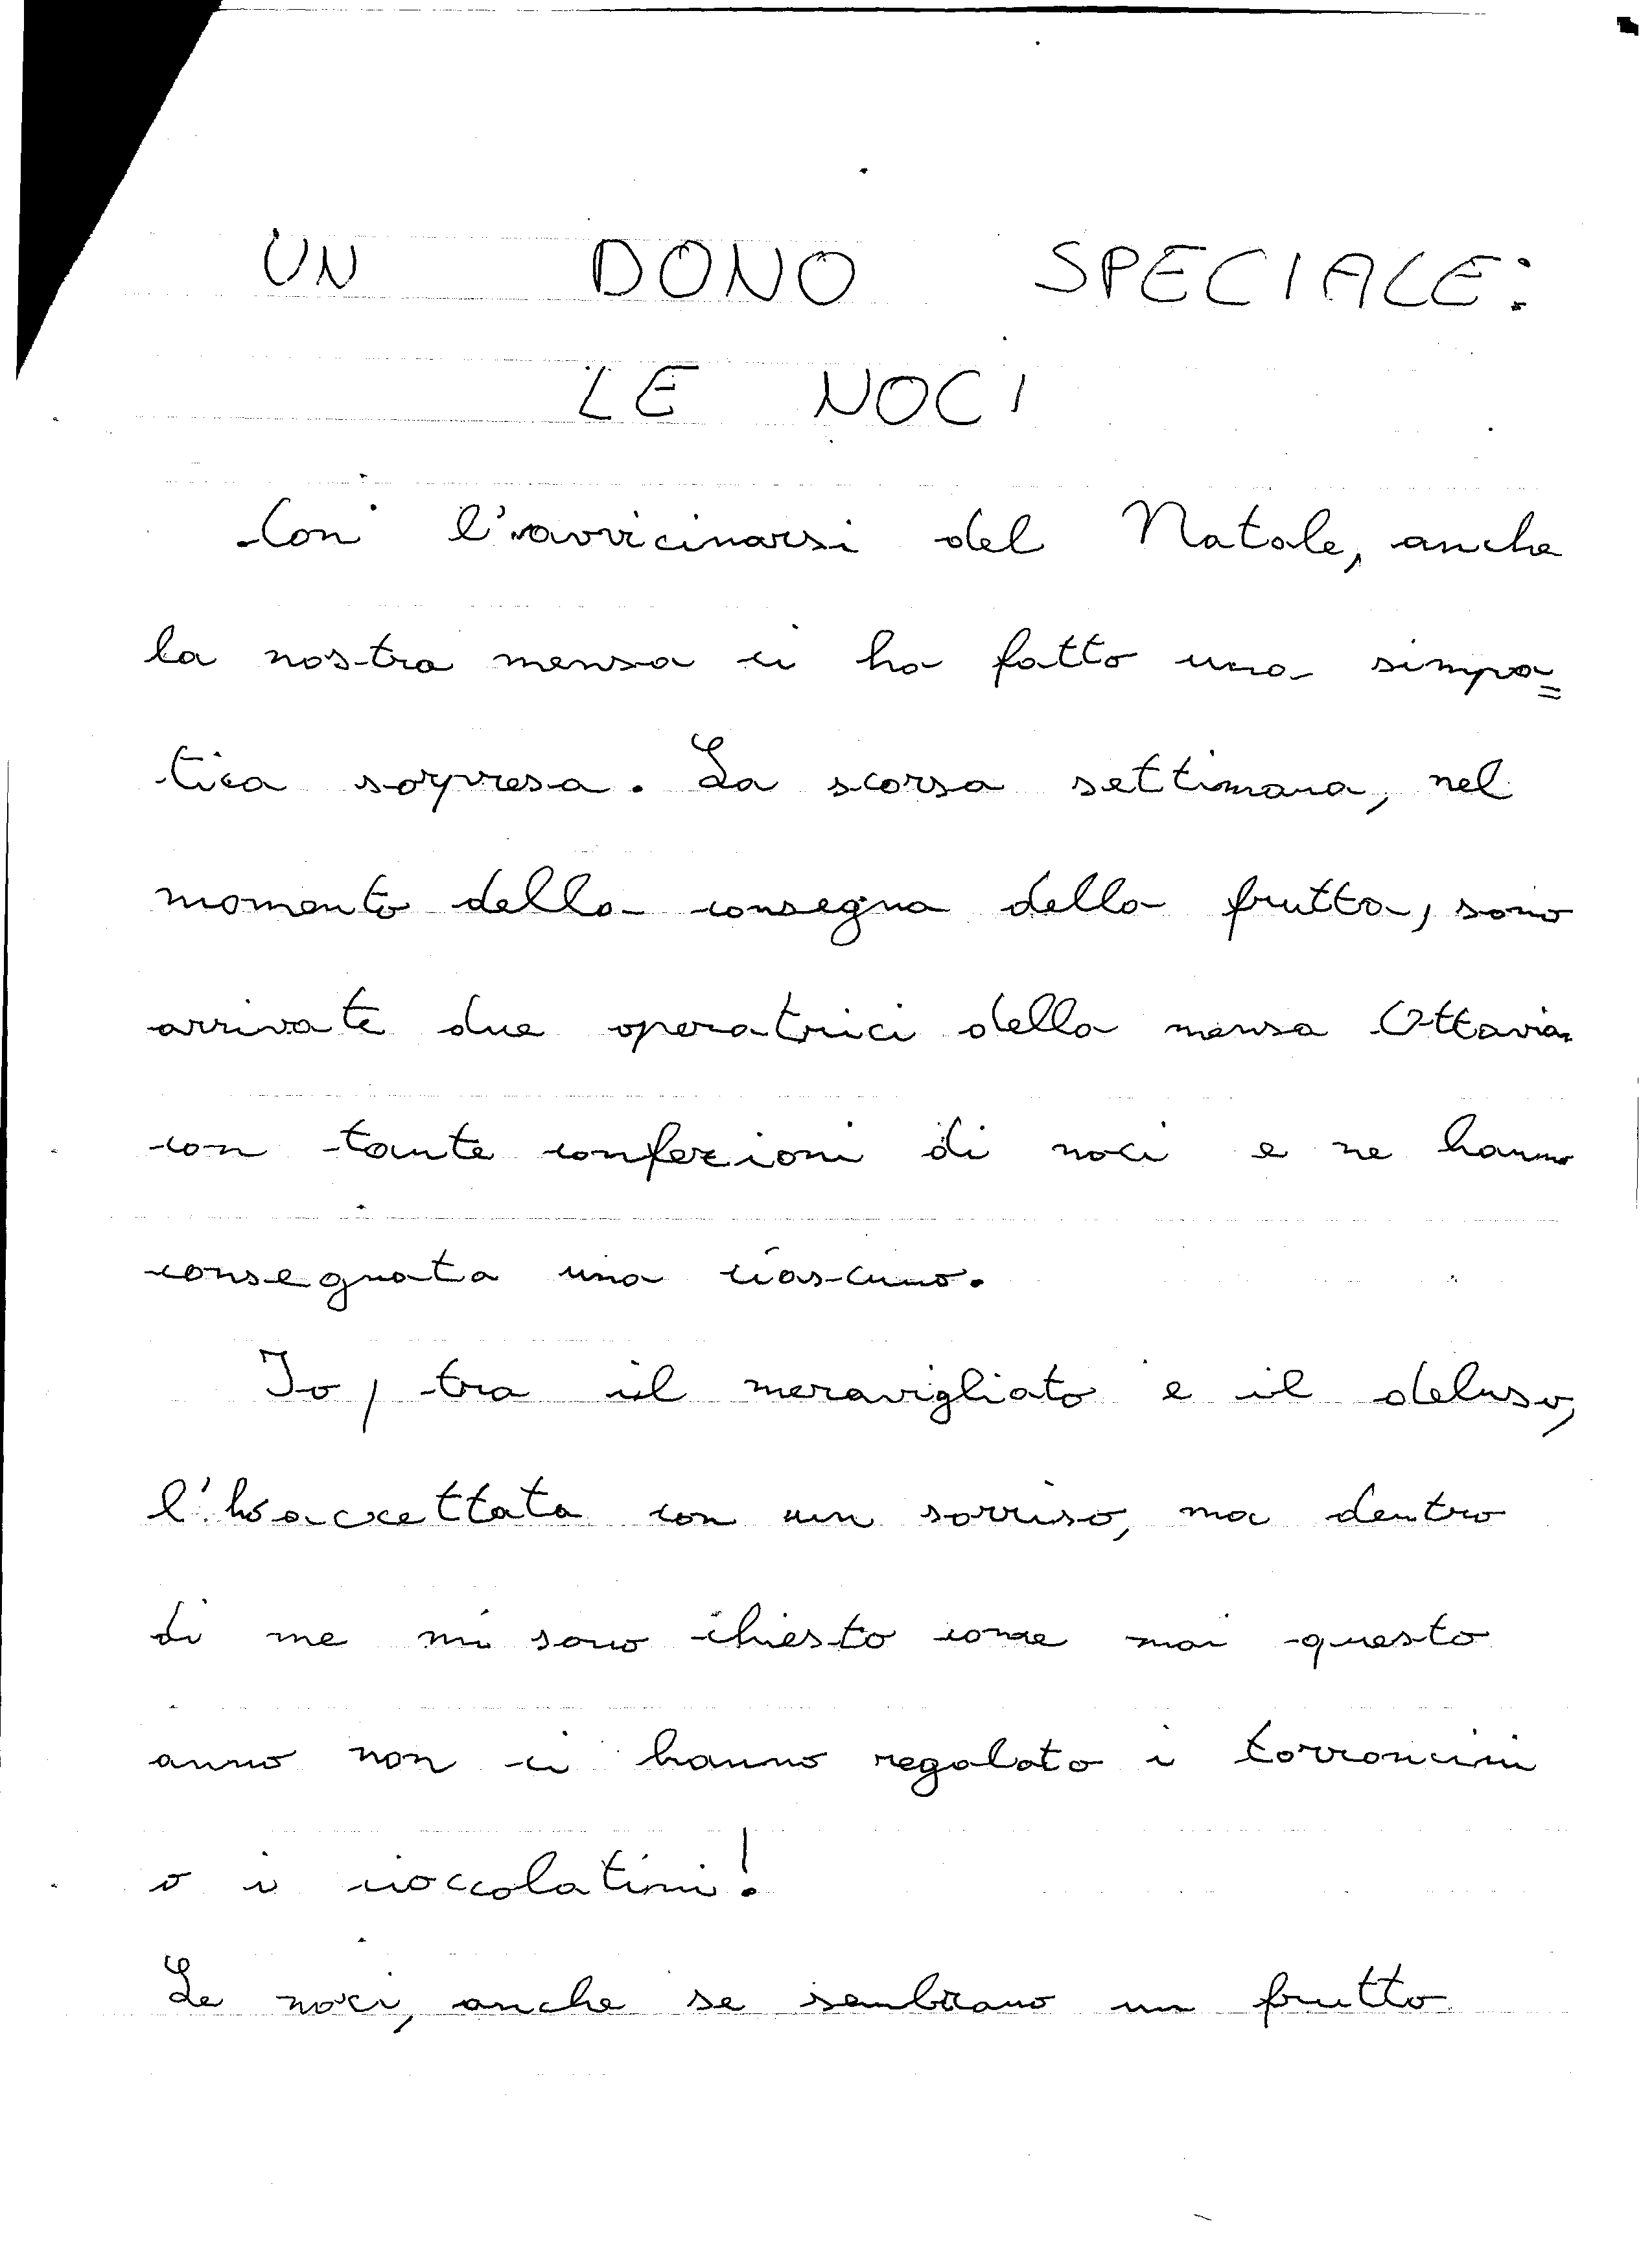 UN DONO SPECIALE:
LE NOCI
Con l'avvicinarsi del Natale, anche
la nostra mensa ci ha fatto una simpa=
tica sorpresa. La scorsa settimana, nel
momento della consegna della frutta, sono
arrivate due operatrici della mensa Ottavian
con tante confezioni di noci e ne hanno
consegnata una ciascuno.
Io, tra il meravigliato e il deluso,
l'ho accettata con un sorriso, ma dentro
di me mi sono chiesto come mai questo
anno non ci hanno regalato i torroncini
o i cioccolatini!
Le noci, anche se sembrano un frutto